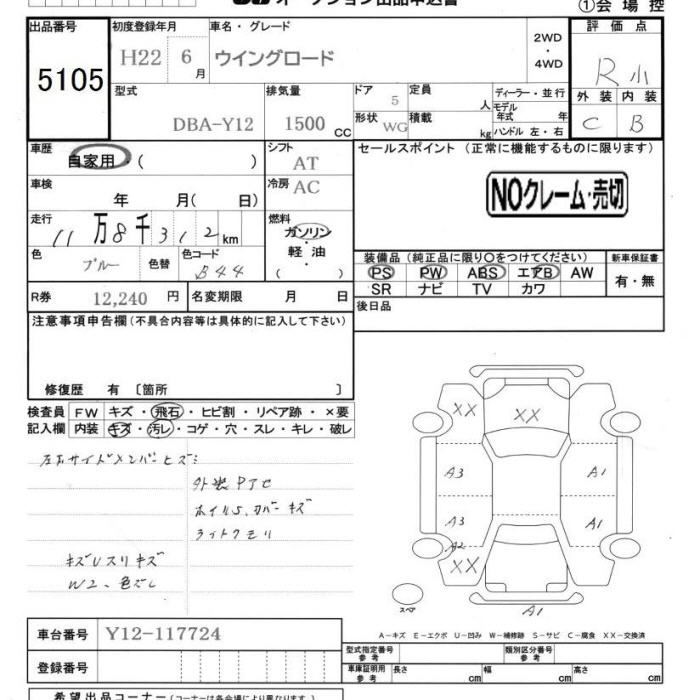 オークション出品申込書
①会場控
出品番号
初度登録年月
車名・グレード
評価点
5105
H22 6月
ウイングロード
2WD・4WD
R 小
型式
排気量
ドア
定員
ディーラー・並行
外装 内装
DBA-Y12
1500 CC
5
人
モデル年式 年
C B
形状 WG
積載 kg
ハンドル 左・右
車歴
自家用・( )
シフト AT
セールスポイント (正常に機能するものに限ります)
車検 年 月( 日)
冷房 AC
NOクレーム・売切
走行 11万8千312km
燃料
ガソリン・軽油・( )
色 ブルー
色替
色コード B44
装備品(純正品に限り○をつけてください)
新車保証書
PS PW ABS エアB AW
有・無
SR ナビ TV カワ
R券 12,240 円
名変期限 月 日
後日品
注意事項申告欄(不具合内容等は具体的に記入して下さい)
修復歴 有 〔箇所 〕
検査員記入欄
FW キズ・飛石・ヒビ割・リペア跡・×要
内装 キズ・汚レ・コゲ・穴・スレ・キレ・破レ
左右サイドメンバーヒズミ
外装Pアセ
ホイルS、カバーキズ
ライトクモリ
キズUスリキズ
W2、色ズレ
XX
XX
A3
A1
A3
A1
A2
XX
スペア
A1
A-キズ E-エクボ U-凹み W-補修跡 S-サビ C-腐食 XX-交換済
車台番号 Y12-117724
型式指定番号 参考
類別区分番号 参考
登録番号
車庫証明用 参考
長さ cm
幅 cm
高さ cm
希望出品コーナー(コーナーは各会場により異なります)